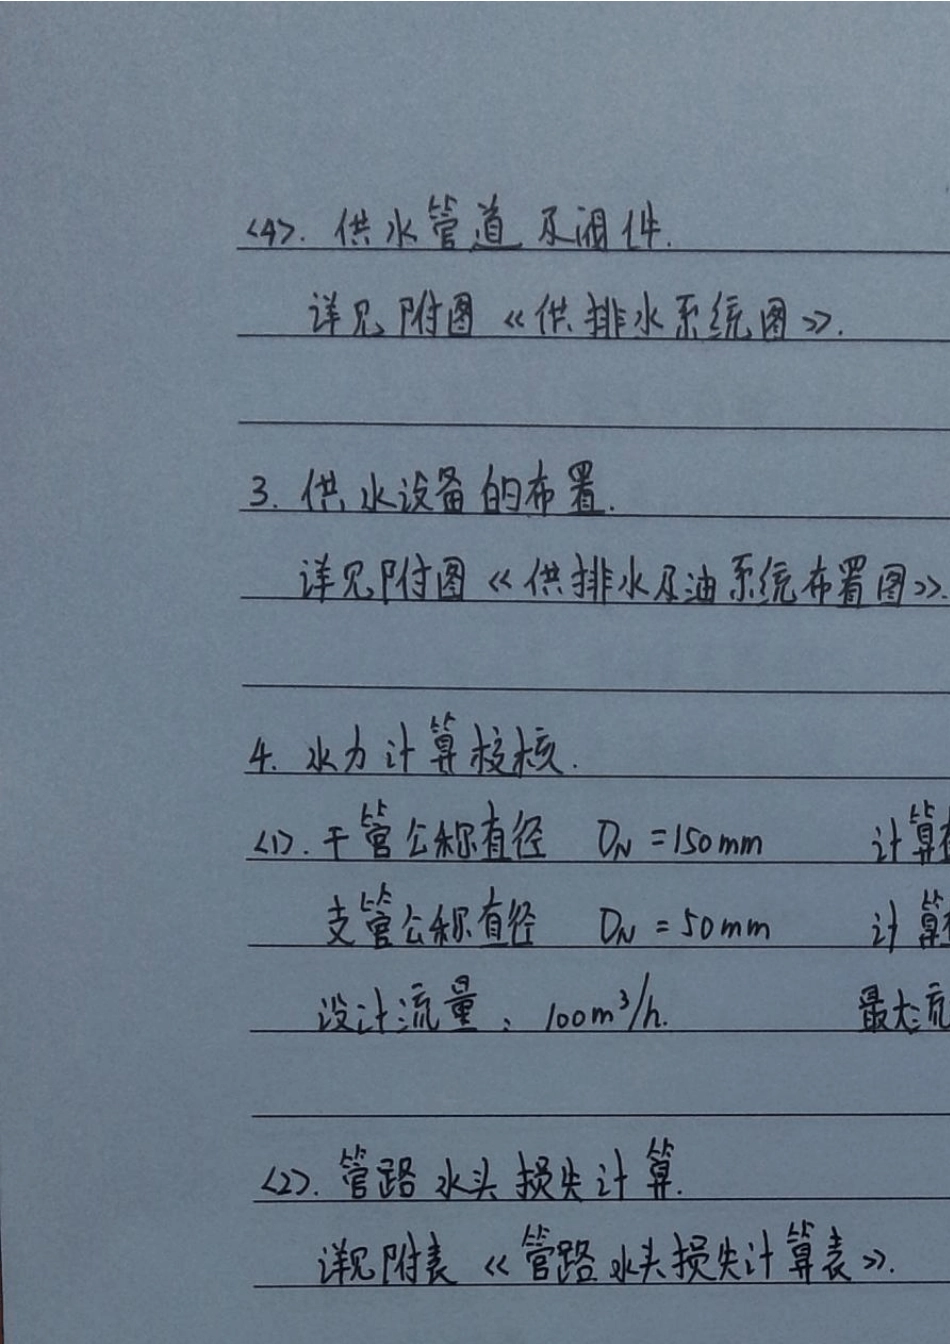 <4>. 供水管道及阀件.
详见附图《供排水系统图》.
3. 供水设备的布置.
详见附图《供排水及油系统布置图》.
4. 水力计算校核.
<1>. 干管公称直径 DN =150mm 计算
支管公称直径 DN = 50mm 计算
设计流量: 100m³/h. 最大流
<2>. 管路水头损失计算.
详见附表《管路水头损失计算表》.